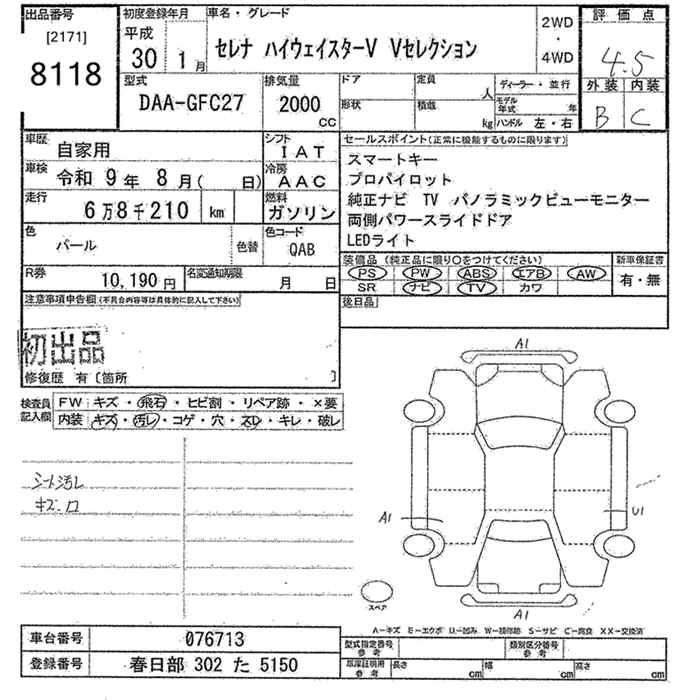 出品番号
[2171]
8118
初度登録年月
平成
30 1 月
車名・グレード
セレナ ハイウェイスターV Vセレクション
2WD
・
4WD
評価点
4.5
外装 内装
B C
型式
DAA-GFC27
排気量
2000
CC
ドア
形状
定員
人
積載
kg
ディーラー・並行
モデル年式 年
ハンドル 左・右
車歴
自家用
シフト
IAT
車検
令和 9年 8月( 日)
冷房
AAC
走行
6万8千210 km
燃料
ガソリン
色
パール
色替
色コード
QAB
R券
10,190円
名変通知期限
月 日
セールスポイント(正常に機能するものに限ります)
スマートキー
プロパイロット
純正ナビ TV パノラミックビューモニター
両側パワースライドドア
LEDライト
装備品(純正品に限り○をつけてください)
PS PW ABS エアB AW
SR ナビ TV カワ
新車保証書
有・無
後日品
注意事項申告欄(不具合内容等は具体的に記入して下さい)
初出品
修復歴 有〔箇所 〕
検査員記入欄
FW キズ・飛石・ヒビ割・リペア跡・×要
内装 キズ・汚レ・コゲ・穴・スレ・キレ・破レ
シート汚レ
キズ・穴
A1
A1
U1
A1
スペア
A-キズ E-エクボ U-凹み W-補修跡 S-サビ C-腐食 XX-交換済
車台番号
076713
登録番号
春日部 302 た 5150
型式指定番号
参考
類別区分番号
参考
車庫証明用
参考
長さ cm
幅 cm
高さ cm